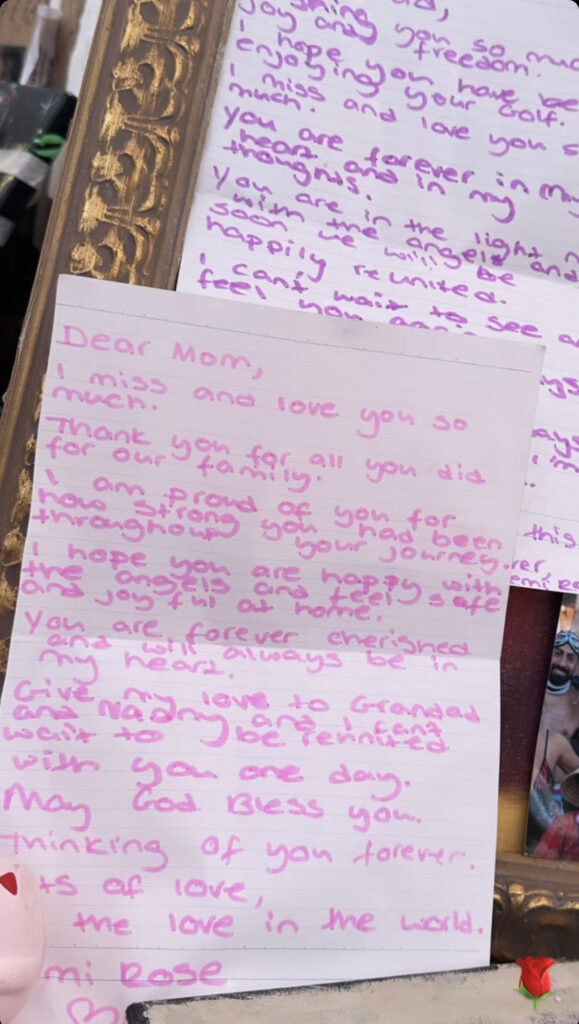 joy and you so
freedom.
I hope you have be
enjoying your Golf.
I miss and love you s
much.
you are forever in my
heart and in my
thoughts.
You are in the light
with the angels and
soon we will be
happily reunited.
I can't wait to see
feel you
ays
this
Dear Mom,
I miss and love you so
much.
Thank you for all you did
for our family.
I am proud of you for
how strong you had been
throughout your journey.
I hope you are happy with
the angels and feel safe
and joyful at home.
You are forever cherished
and will always be in
my heart.
Give my love to Grandad
and Nanny and I cant
wait to be reunited
with you one day.
May God Bless you.
thinking of you forever.
ts of love,
the love in the world.
mi Rose